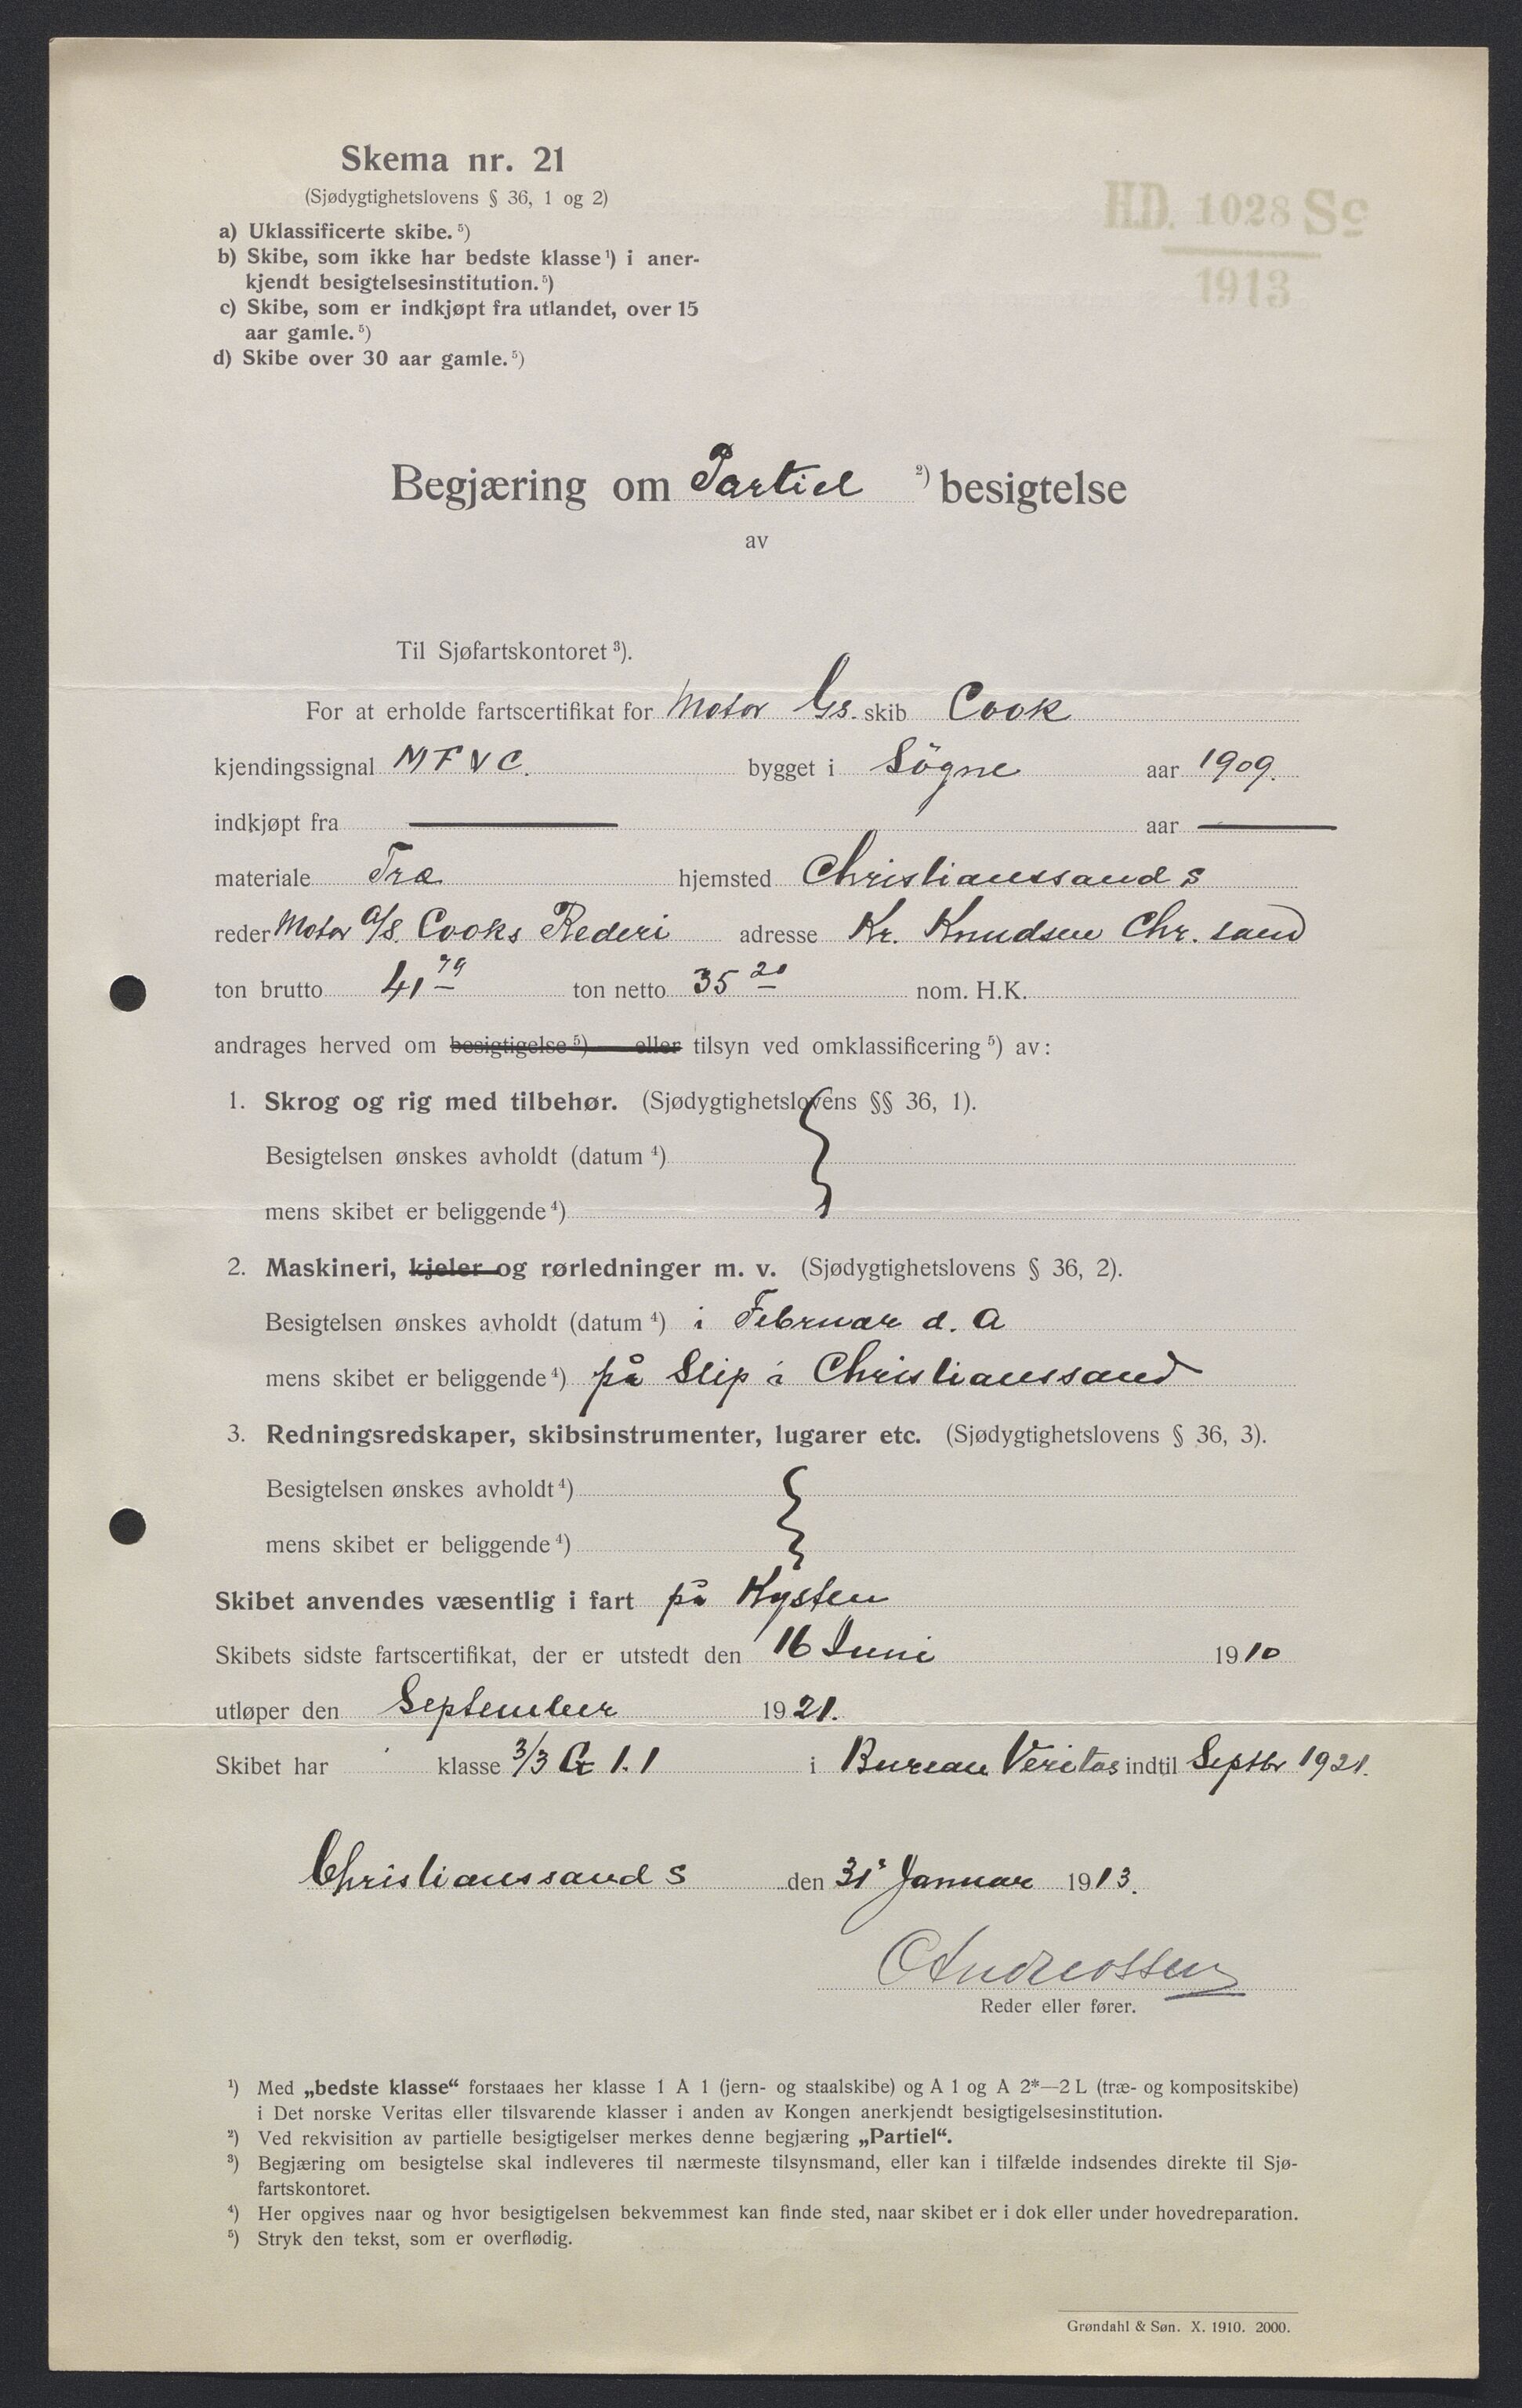 Skema nr. 21
(Sjødygtighetslovens § 36, 1 og 2)
a) Uklassificerte skibe. ⁵)
b) Skibe, som ikke har bedste klasse ¹) i aner-
kjendt besigtelsesinstitution. ⁵)
c) Skibe, som er indkjøpt fra utlandet, over 15
aar gamle. ⁵)
d) Skibe over 30 aar gamle. ⁵)
H.D. 1028 Sc
1913
Begjæring om Partiel ²) besigtelse
av
Til Sjøfartskontoret ³).
For at erholde fartscertifikat for Motor Gs. skib Cook
kjendingssignal MFVC. bygget i Sögne aar 1909.
indkjøpt fra — aar —
materiale Træ hjemsted Christianssand S
reder Motor A/S. Cooks Rederi adresse Kr. Knudsen Chr. sand
ton brutto 41 79 ton netto 35 20 nom. H.K.
andrages herved om besigtigelse ⁵) — eller tilsyn ved omklassificering ⁵) av:
1. Skrog og rig med tilbehør. (Sjødygtighetslovens §§ 36, 1).
Besigtelsen ønskes avholdt (datum ⁴)
mens skibet er beliggende ⁴)
2. Maskineri, kjeler og rørledninger m. v. (Sjødygtighetslovens § 36, 2).
Besigtelsen ønskes avholdt (datum ⁴) i Februar d. A
mens skibet er beliggende ⁴) på Slip i Christianssand
3. Redningsredskaper, skibsinstrumenter, lugarer etc. (Sjødygtighetslovens § 36, 3).
Besigtelsen ønskes avholdt ⁴)
mens skibet er beliggende ⁴)
Skibet anvendes væsentlig i fart på Kysten
Skibets sidste fartscertifikat, der er utstedt den 16 Juni 1910
utløper den September 1921.
Skibet har klasse 3/3 G 1.1 i Bureau Veritas indtil Septbr 1921.
Christianssand S den 31' Januar 1913.
C Andreassen
Reder eller fører.
¹) Med „bedste klasse“ forstaaes her klasse 1 A 1 (jern- og staalskibe) og A 1 og A 2*—2 L (træ- og kompositskibe)
i Det norske Veritas eller tilsvarende klasser i anden av Kongen anerkjendt besigtigelsesinstitution.
²) Ved rekvisition av partielle besigtigelser merkes denne begjæring „Partiel“.
³) Begjæring om besigtelse skal indleveres til nærmeste tilsynsmand, eller kan i tilfælde indsendes direkte til Sjø-
fartskontoret.
⁴) Her opgives naar og hvor besigtigelsen bekvemmest kan finde sted, naar skibet er i dok eller under hovedreparation.
⁵) Stryk den tekst, som er overflødig.
Grøndahl & Søn. X. 1910. 2000.